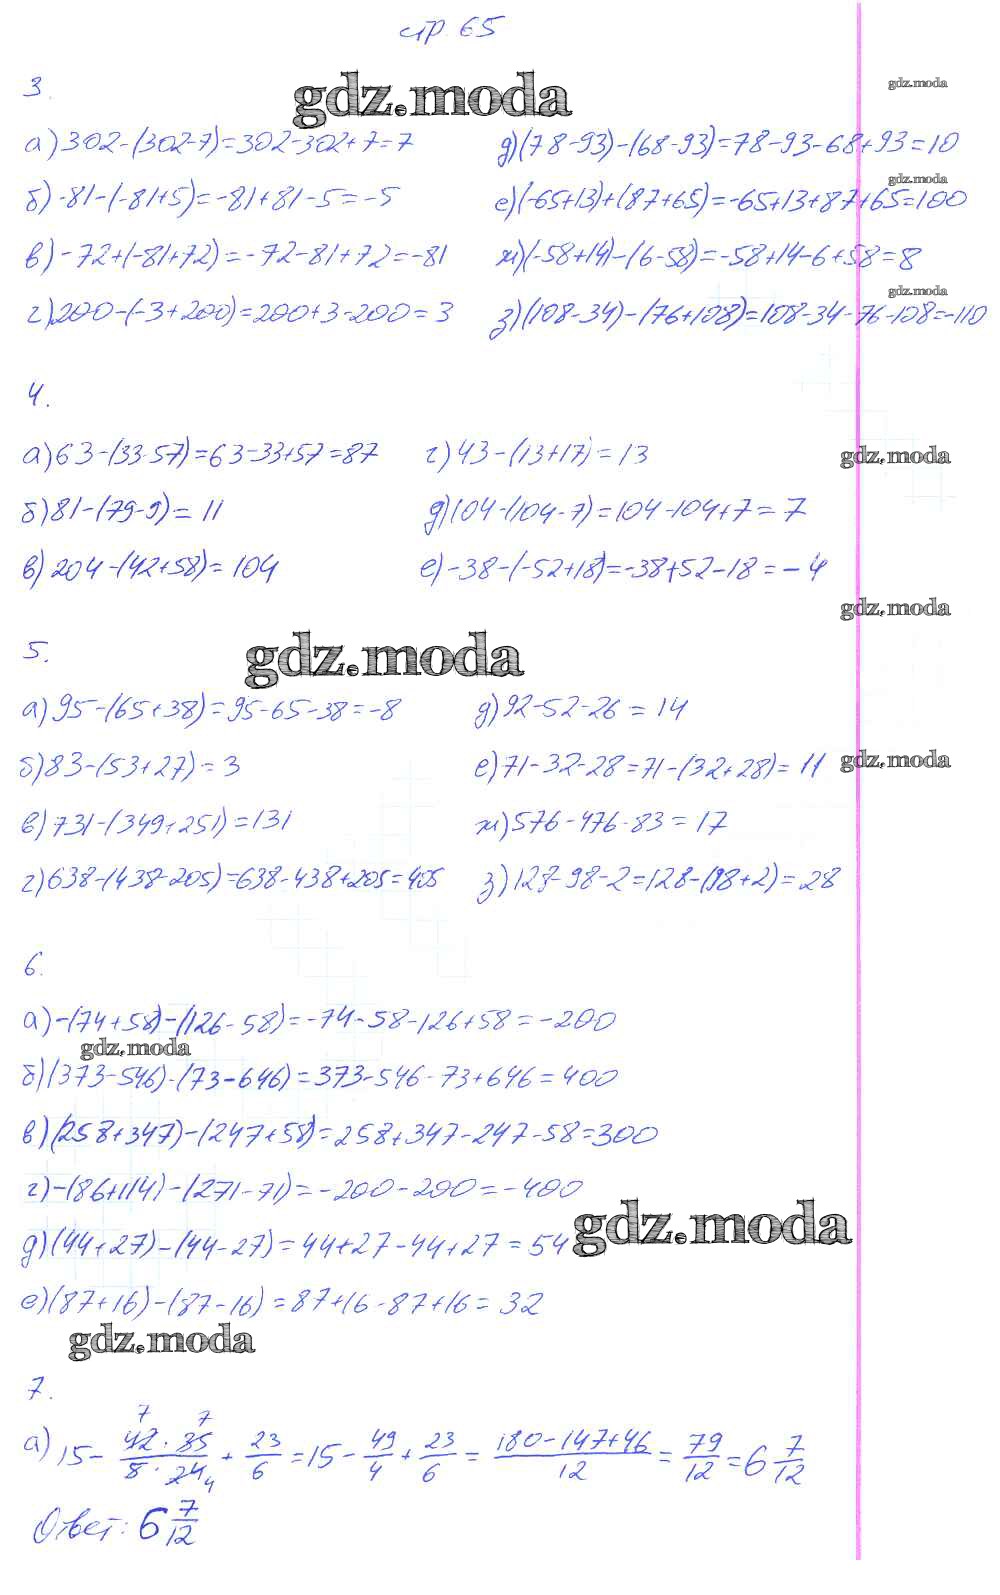 стр. 65
3.
gdz.moda
gdz.moda
а) 302-(302-7)=302-302+7=7
д) (78-93)-(68-93)=78-93-68+93=10
gdz.moda
б) -81-(-81+5)=-81+81-5=-5
е) (-65+13)+(87+65)=-65+13+87+65=100
в) -72+(-81+72)=-72-81+72=-81
ж) (-58+14)-(6-58)=-58+14-6+58=8
gdz.moda
г) 200-(-3+200)=200+3-200=3
з) (108-34)-(76+108)=108-34-76-108=-110
4.
а) 63-(33-57)=63-33+57=87
г) 43-(13+17)=13
gdz.moda
б) 81-(79-9)=11
д) 104-(104-7)=104-104+7=7
в) 204-(42+58)=104
е) -38-(-52+18)=-38+52-18=-4
gdz.moda
5.
gdz.moda
а) 95-(65+38)=95-65-38=-8
д) 92-52-26=14
б) 83-(53+27)=3
е) 71-32-28=71-(32+28)=11
gdz.moda
в) 731-(349+251)=131
ж) 576-476-83=17
г) 638-(438-205)=638-438+205=405
з) 128-98-2=128-(98+2)=28
6.
а) -(74+58)-(126-58)=-74-58-126+58=-200
gdz.moda
б) (373-546)-(73-646)=373-546-73+646=400
в) (258+347)-(247+58)=258+347-247-58=300
г) -(86+114)-(271-71)=-200-200=-400
gdz.moda
д) (44+27)-(44-27)=44+27-44+27=54
е) (87+16)-(87-16)=87+16-87+16=32
gdz.moda
7.
7 7
а) 15 - 42·35/8·24 4 + 23/6 = 15 - 49/4 + 23/6 = 180-147+46/12 = 79/12 = 6 7/12
Ответ: 6 7/12